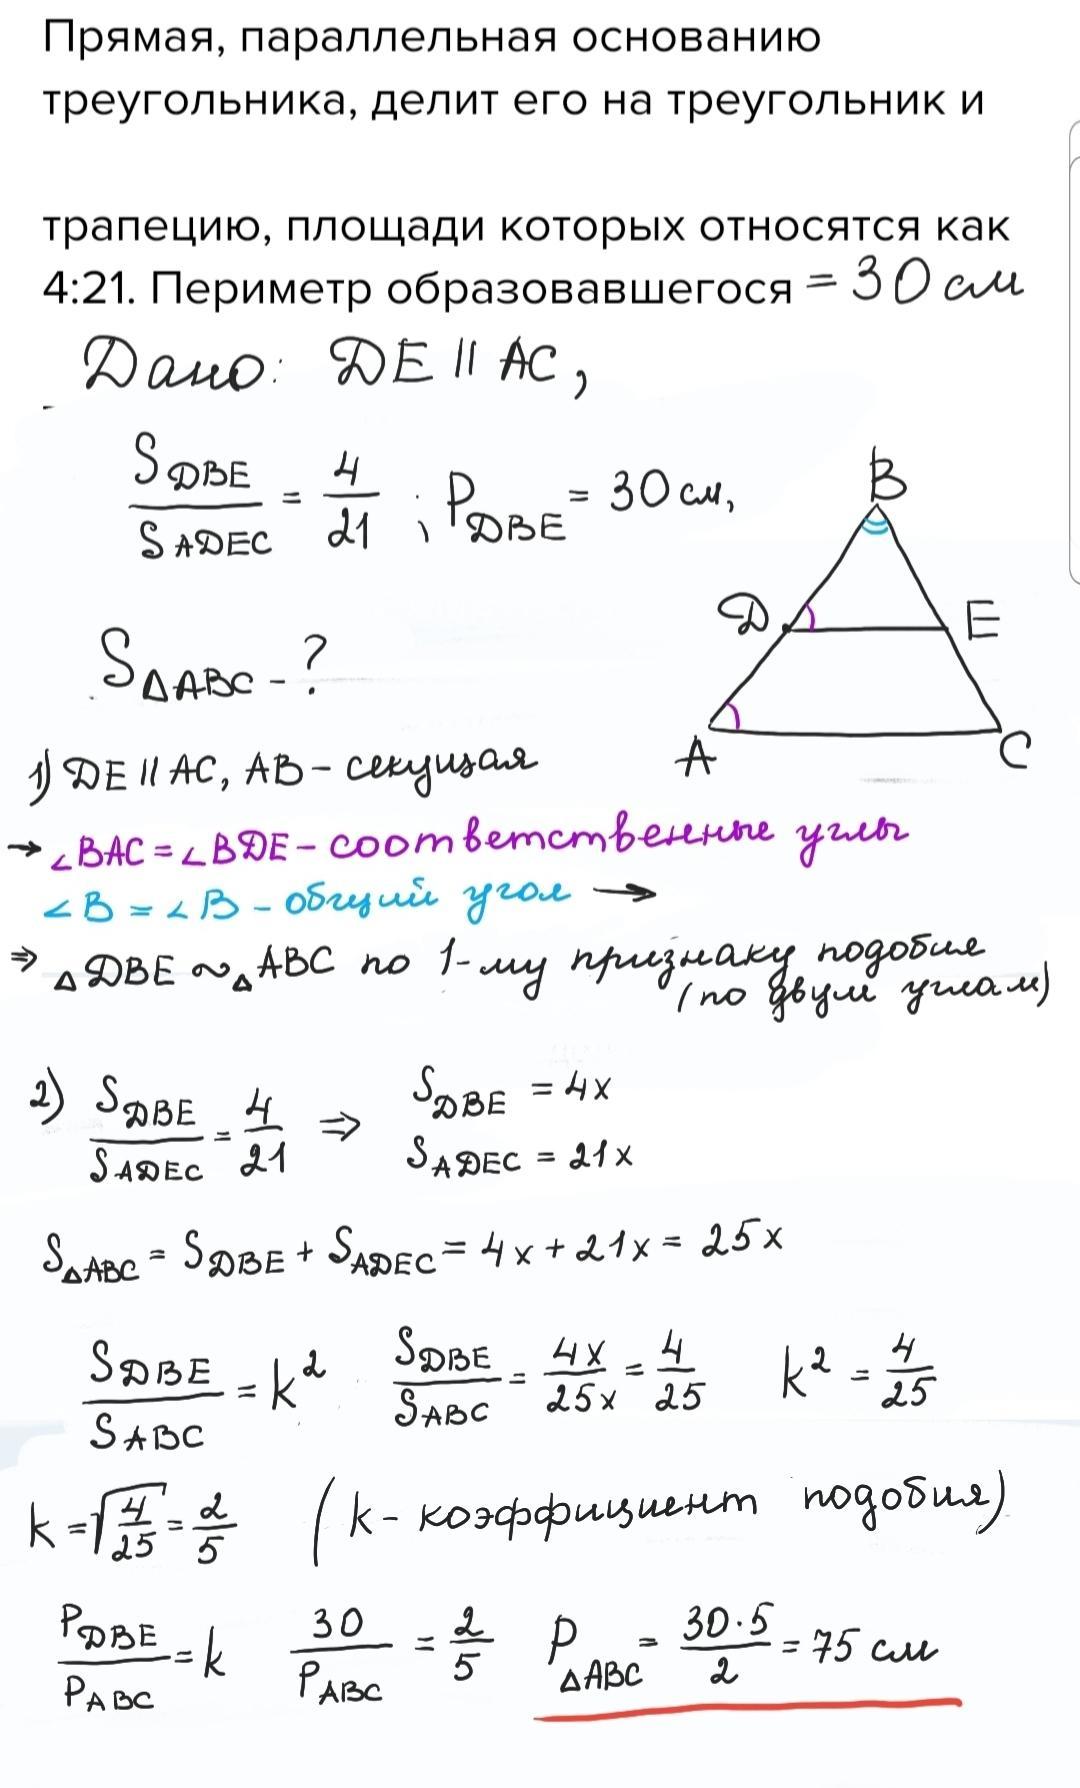 Прямая, параллельная основанию
треугольника, делит его на треугольник и
трапецию, площади которых относятся как
4:21. Периметр образовавшегося = 30 см
Дано: DE || AC,
S DBE / S ADEC = 4/21 ; P DBE = 30 см,
S△ABC - ?
B
D
E
A
C
1) DE || AC, AB - секущая
→ ∠BAC = ∠BDE - соответственные углы
∠B = ∠B - общий угол →
⇒ △DBE ~ △ABC по 1-му признаку подобия
(по двум углам)
2) S DBE / S ADEC = 4/21 ⇒ S DBE = 4x
S ADEC = 21x
S△ABC = S DBE + S ADEC = 4x + 21x = 25x
S DBE / S ABC = k² S DBE / S ABC = 4x/25x = 4/25 k² = 4/25
k = √4/25 = 2/5 (k - коэффициент подобия)
P DBE / P ABC = k 30 / P ABC = 2/5 P△ABC = 30·5/2 = 75 см